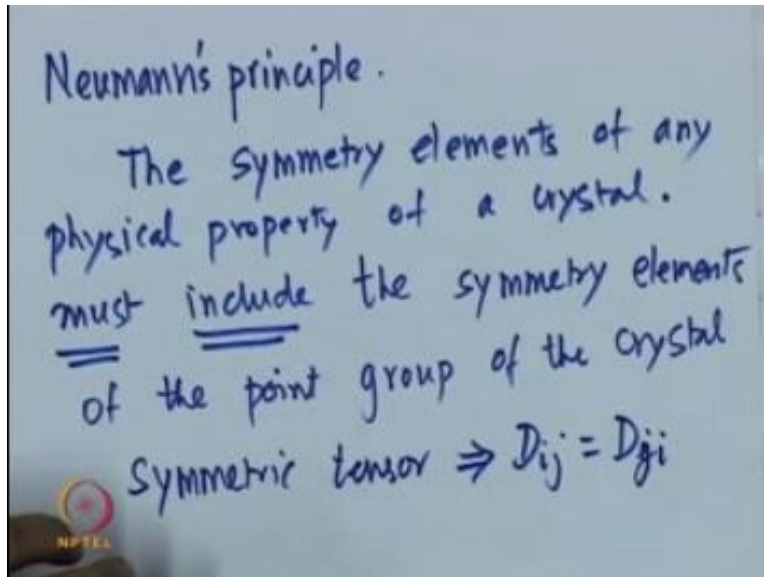 Neumann's principle.
The symmetry elements of any
physical property of a crystal.
must include the symmetry elements
of the point group of the crystal
Symmetric tensor ⇒ Dij = Dji
NPTEL